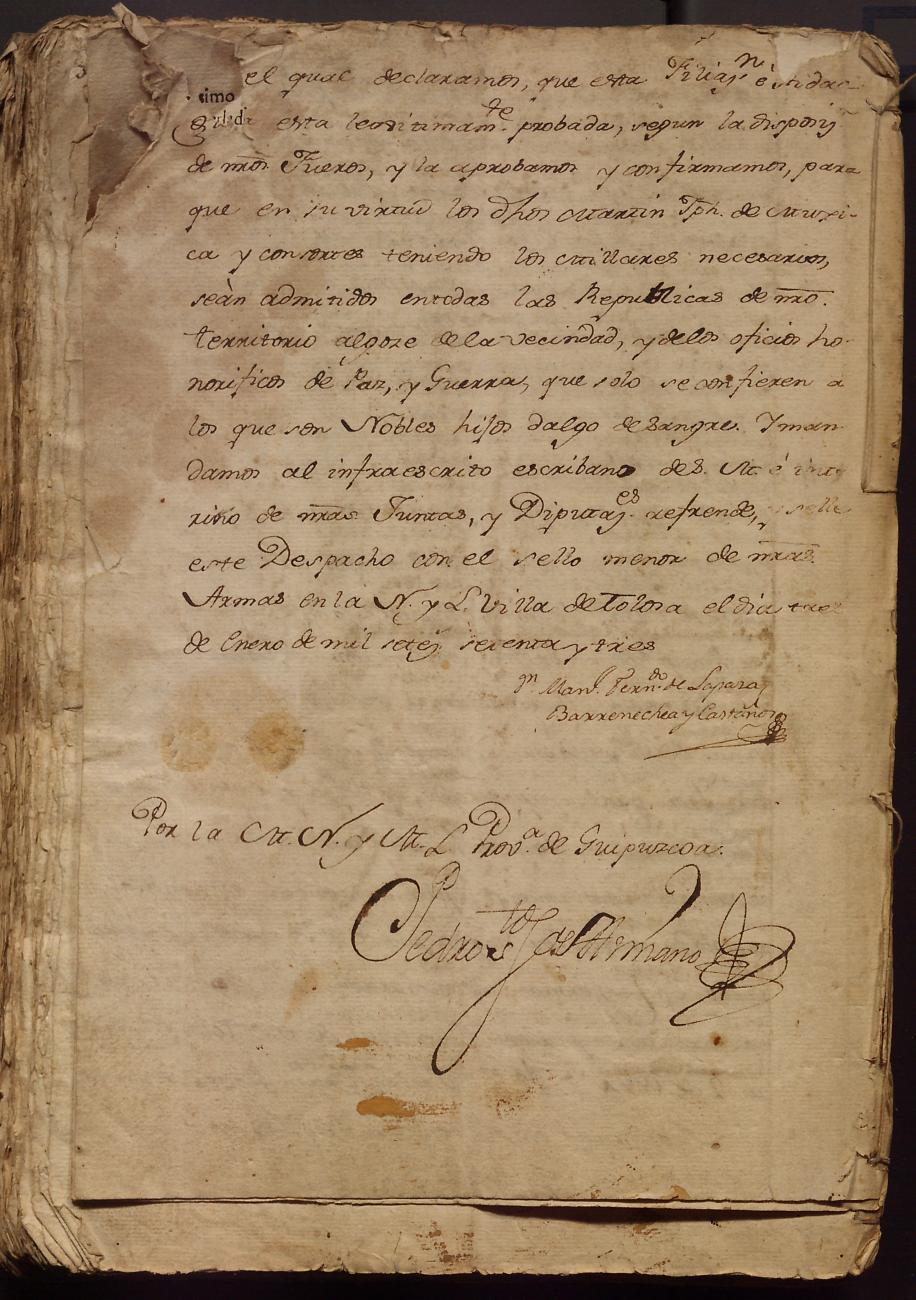 el qual declaramos, que esta Filiaȷ.n
simo
esta legitimam.te probada, segun la disposiȷ.
de nr̃os Fueros, y la aprobamos y confirmamos, para
que en su virtud los dhos Martin Jph. de Muxi-
ca y consortes teniendo los Millares necesarios,
seàn admitidos en todas las Republicas de nr̃o.
territorio al goze de la vecindad, y delos oficios ho-
norificos de Paz, y Guerra, que solo se confieren a
los que son Nobles hijos dalgo de Sangre. Y man-
damos al infraescrito escribano de S. M. é
de nr̃as Juntas, y Diputaȷ.es refrende, y selle
este Despacho con el sello menor de nr̃as
Armas en la N. y L. Villa de Tolosa el dia tres
de Enero de mil seteȷ. setenta y tres
Man.l Fern.do de
Barrenechea y Castaños
Por la M. N. y M. L. Prov.a de Guipuzcoa.
Pedro